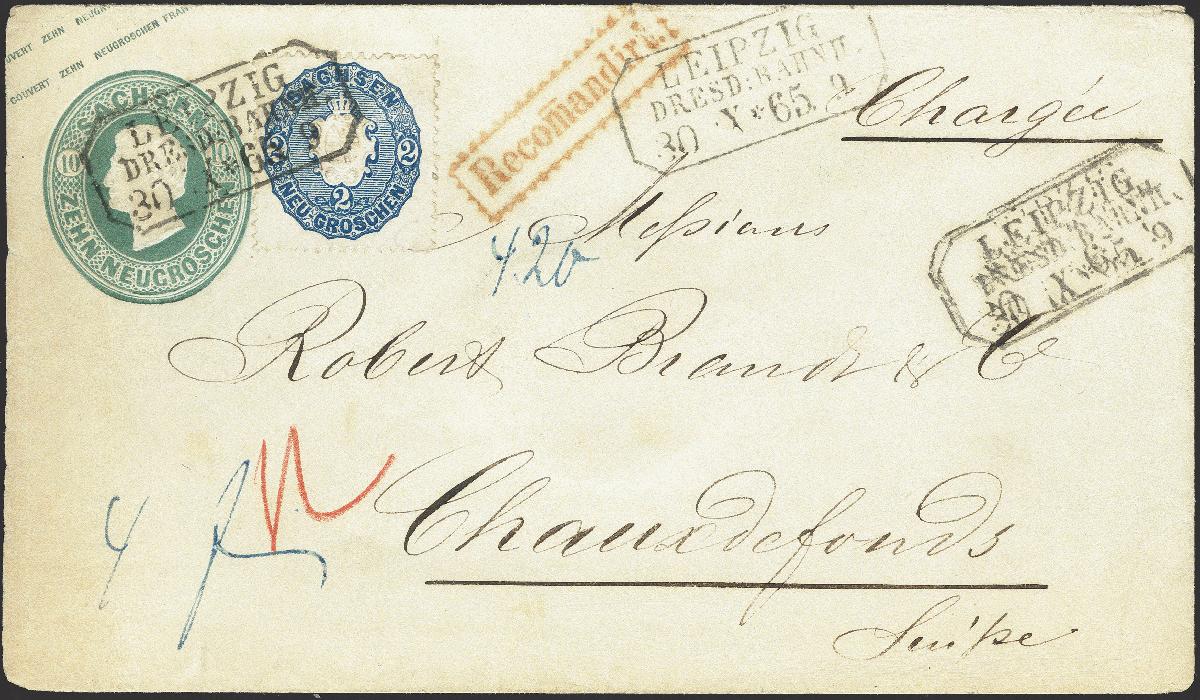 COUVERT ZEHN NEUGR
COUVERT ZEHN NEUGROSCHEN FRAN
SACHSEN
10 10
ZEHN NEUGROSCHEN
SACHSEN
2 2
2
NEU-GROSCHEN
LEIPZIG
DRESD: BAHNH.
30 X * 65 9
Recomandirt.
LEIPZIG
DRESD: BAHNH.
30 X * 65 9
Chargée
LEIPZIG
DRESD: BAHNH.
30 X * 65 9
Messieurs
4.20
Robert Brandt & Co
4
Chauxdefonds
Suiße